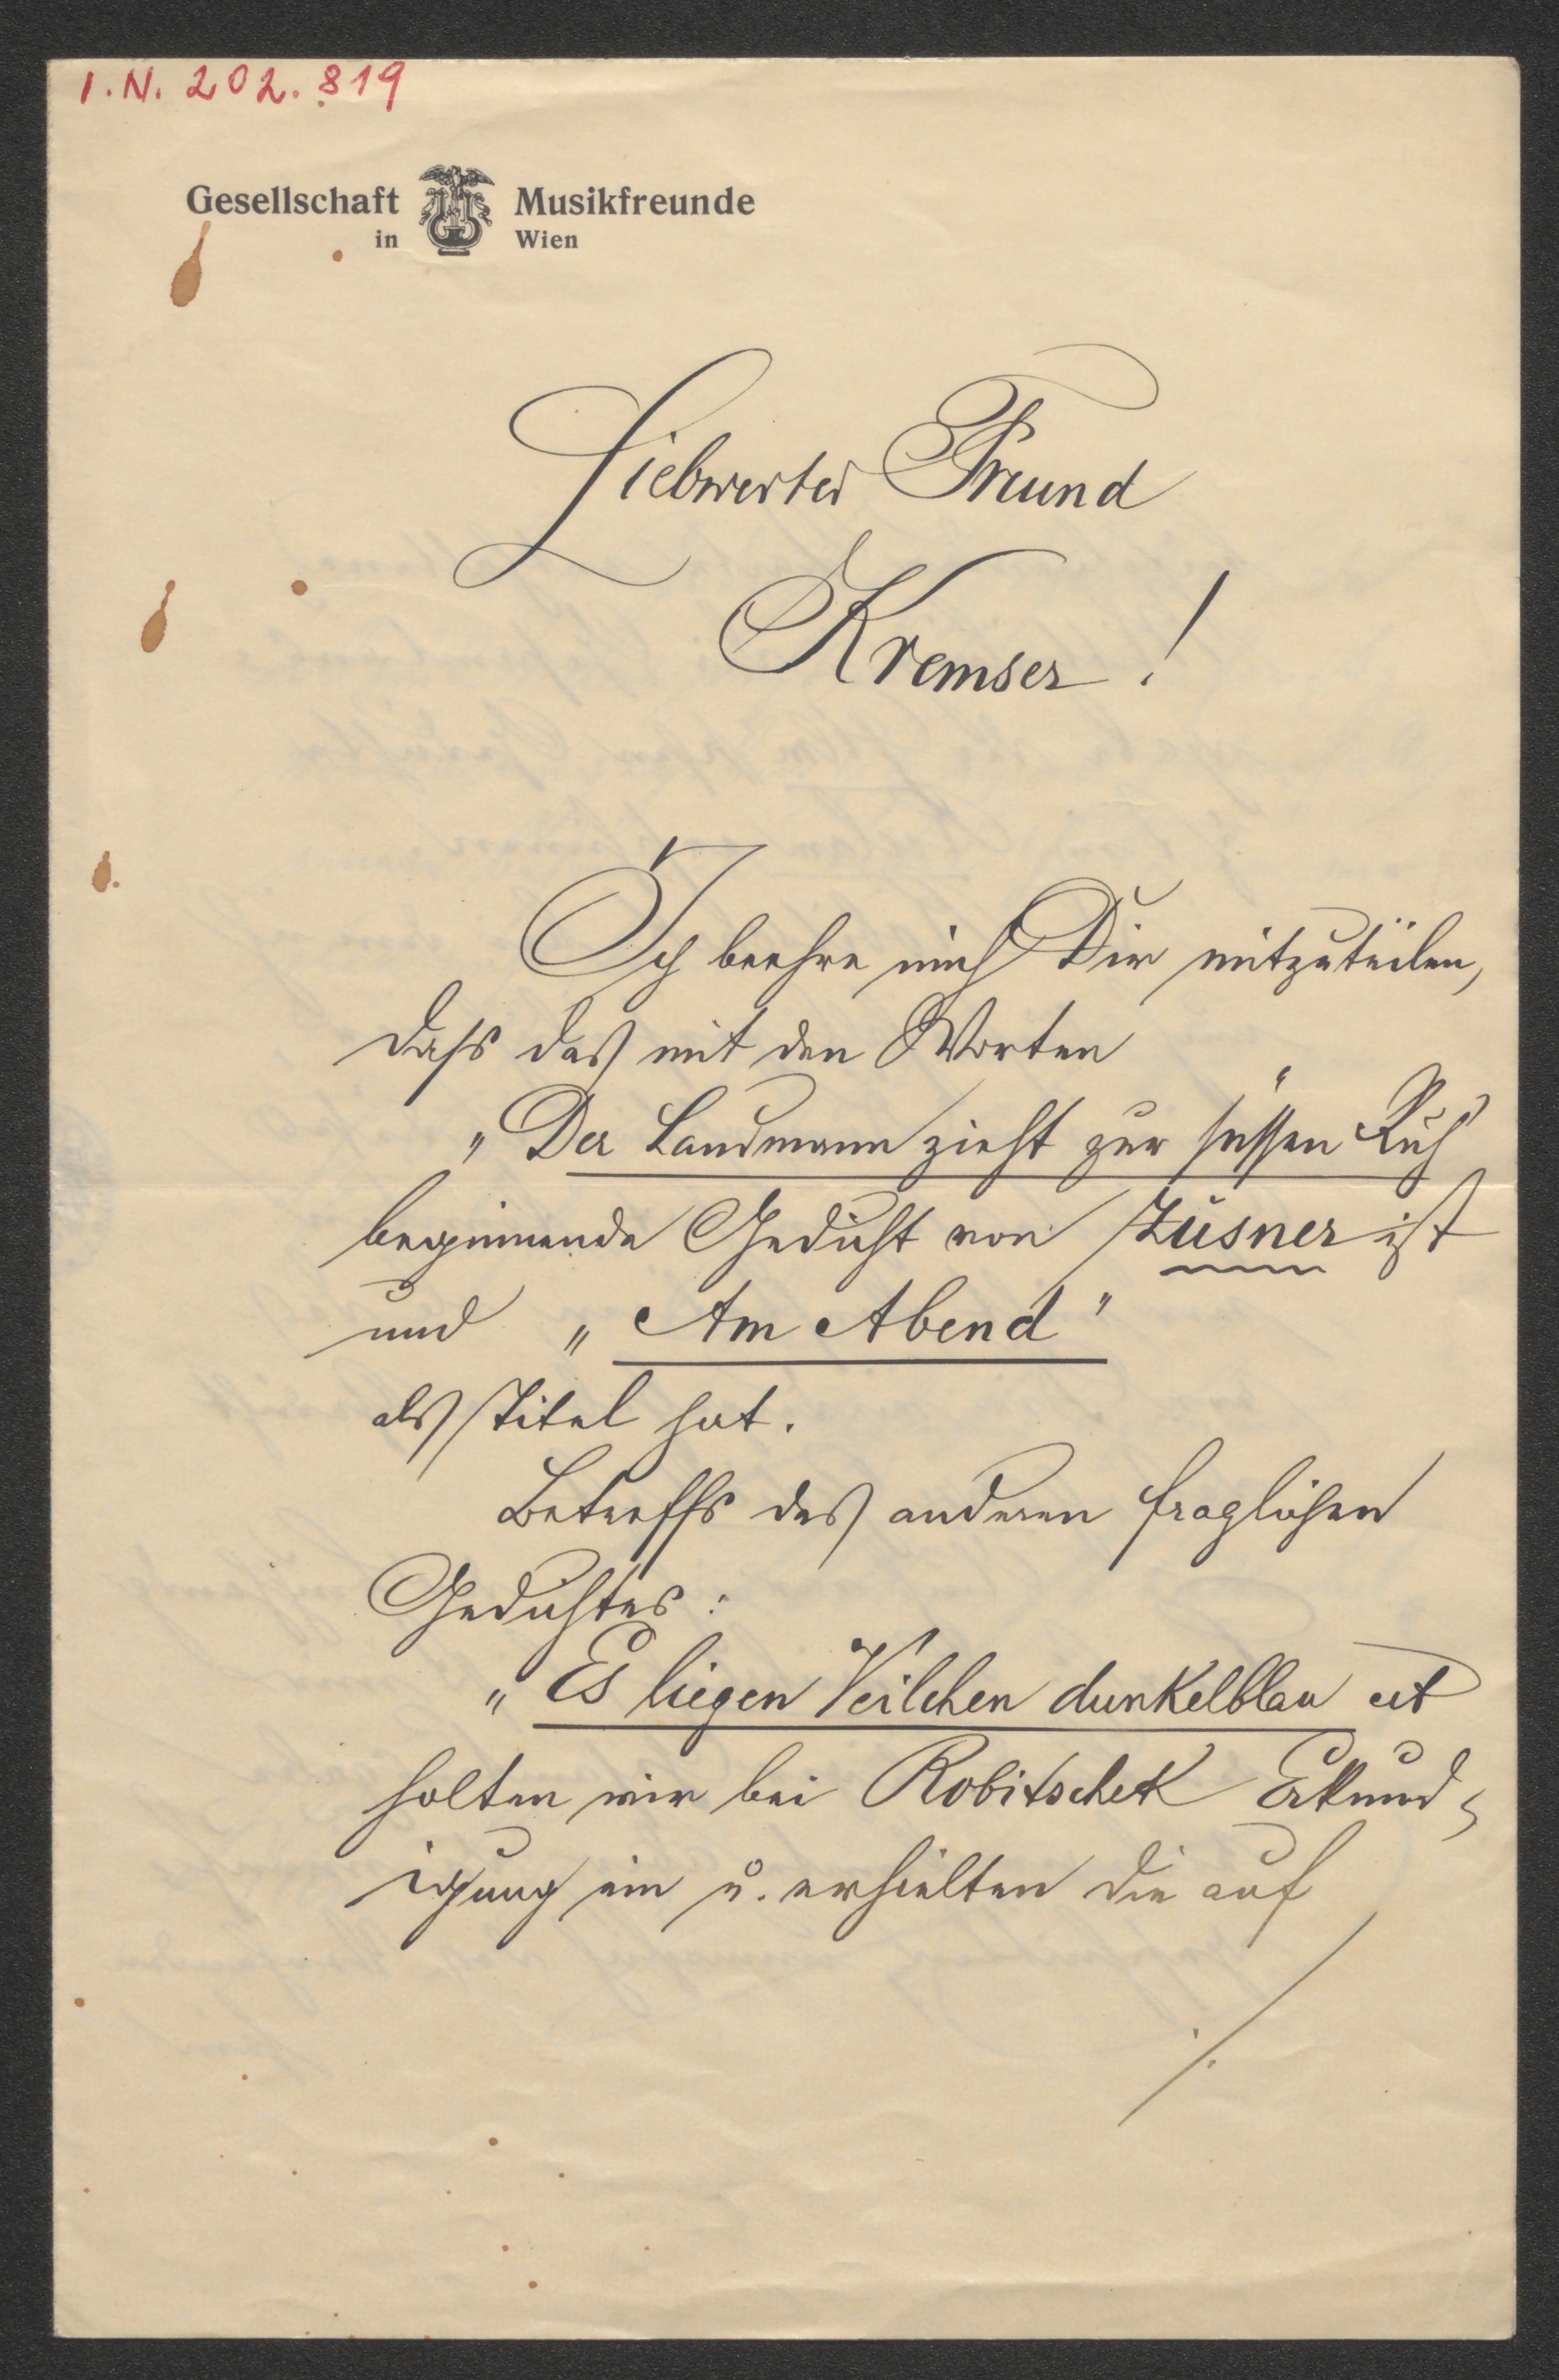 I. N. 202.819
Gesellschaft Musikfreunde
in Wien
Liebwerter Freund
Kremser !
Ich beehre mich Dir mitzuteilen,
dass das mit den Worten
„Der Landmann zieht zur süssen Ruh"
beginnende Gedicht von Zusner ist
und „Am Abend"
als Titel hat.
Betreffs des anderen fraglichen
Gedichtes:
„Es liegen Veilchen dunkelblau
holten wir bei Robitschek Erkund-
igung ein u. erhielten die auf
./.